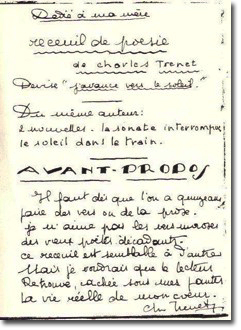 Dédié à ma mère
receuil de poesie
de charles Trenet
Devise "j'avance vers le soleil."
Du même auteur:
2 nouvelles. la sonate interrompue
le soleil dans le train.
AVANT-PROPOS
Il faut dès que l'on a quinze ans
faire des vers ou de la prose.
je n'aime pas les vers moroses
des vieux poètes décadents
ce receuil est semblable à d'autres
Mais je voudrais que le lecteur
Retrouve, cachée sous mes fautes
La vie réelle de mon coeur.
Ch. Trenet